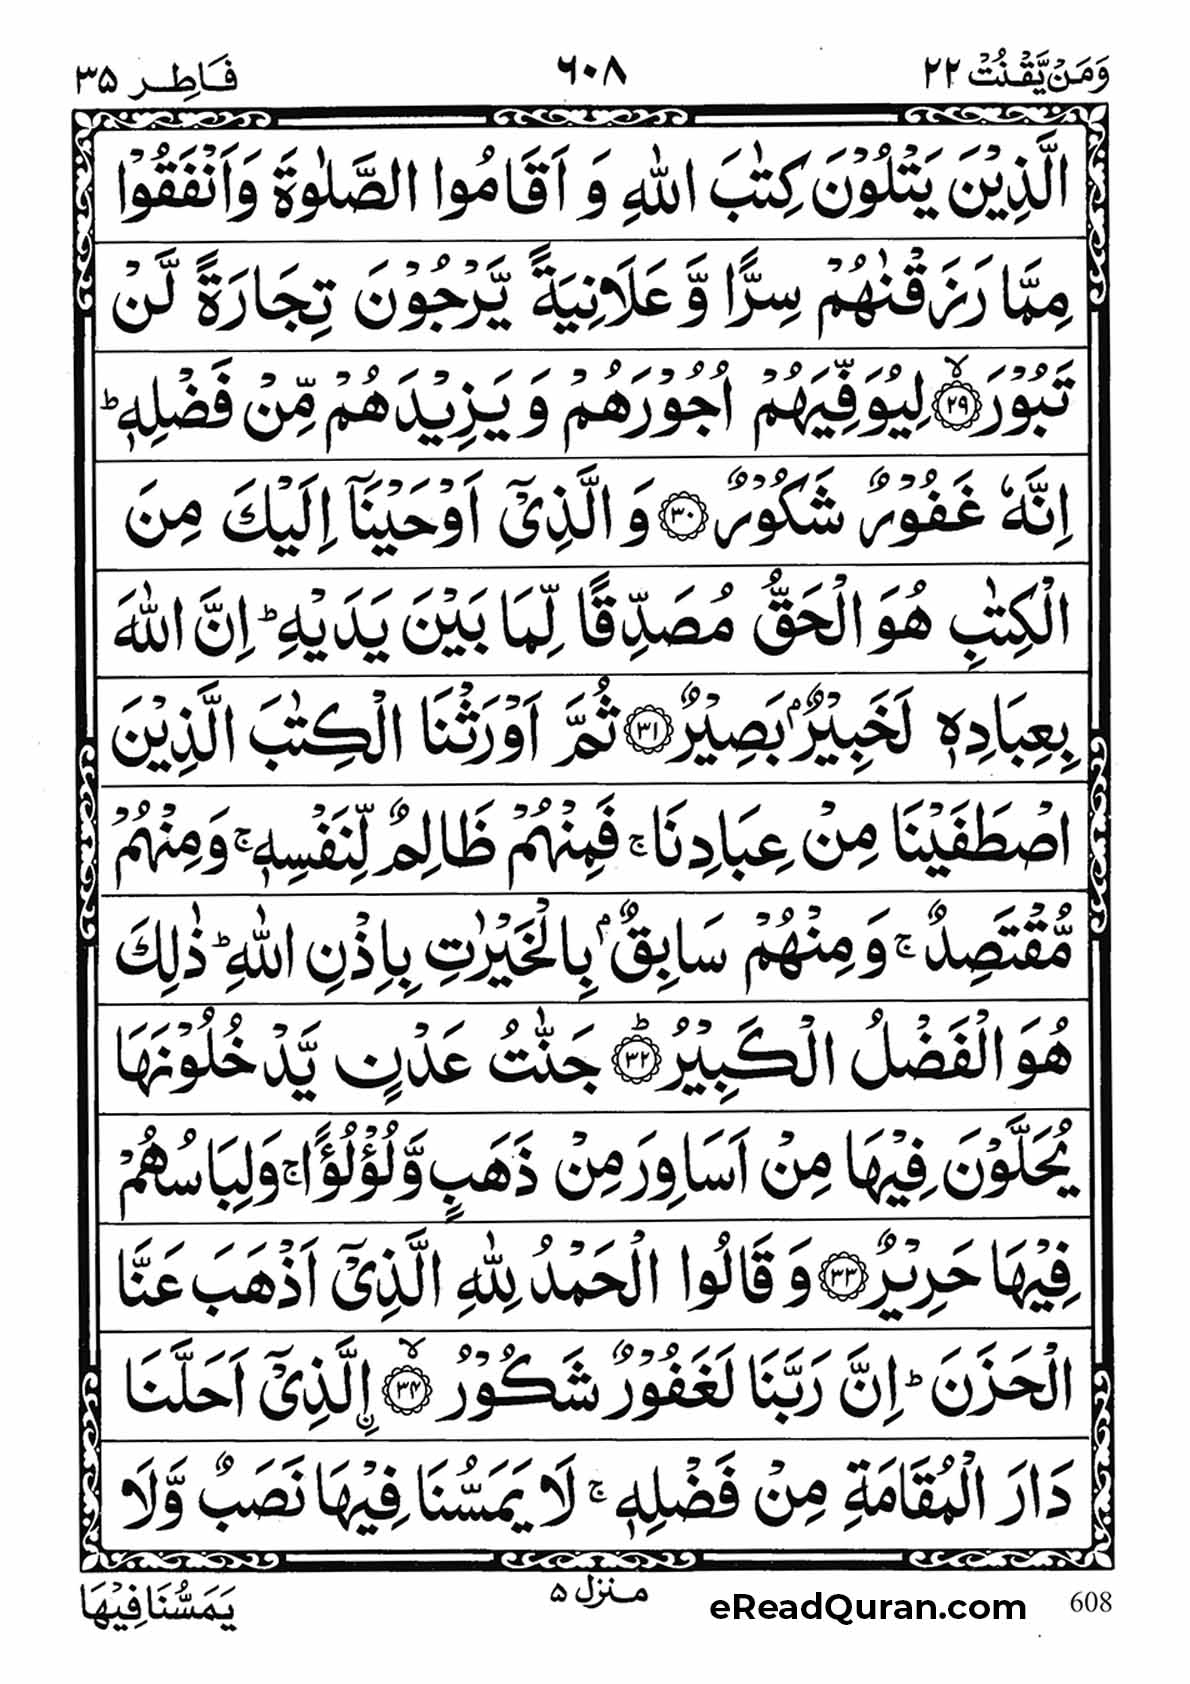 وَمَنْ يَّقْنُتْ ٢٢
٦٠٨
فَاطِر ٣٥
الَّذِيْنَ يَتْلُوْنَ كِتٰبَ اللّٰهِ وَ اَقَامُوا الصَّلٰوةَ وَاَنْفَقُوْا
مِمَّا رَزَقْنٰهُمْ سِرًّا وَّ عَلَانِيَةً يَّرْجُوْنَ تِجَارَةً لَّنْ
تَبُوْرَ ﴿٢٩﴾ۙ لِيُوَفِّيَهُمْ اُجُوْرَهُمْ وَ يَزِيْدَهُمْ مِّنْ فَضْلِهٖ ؕ
اِنَّهٗ غَفُوْرٌ شَكُوْرٌ ﴿٣٠﴾ وَ الَّذِيْۤ اَوْحَيْنَاۤ اِلَيْكَ مِنَ
الْكِتٰبِ هُوَ الْحَقُّ مُصَدِّقًا لِّمَا بَيْنَ يَدَيْهِ ؕ اِنَّ اللّٰهَ
بِعِبَادِهٖ لَخَبِيْرٌۢ بَصِيْرٌ ﴿٣١﴾ ثُمَّ اَوْرَثْنَا الْكِتٰبَ الَّذِيْنَ
اصْطَفَيْنَا مِنْ عِبَادِنَا ۚ فَمِنْهُمْ ظَالِمٌ لِّنَفْسِهٖ ۚ وَمِنْهُمْ
مُّقْتَصِدٌ ۚ وَمِنْهُمْ سَابِقٌۢ بِالْخَيْرٰتِ بِاِذْنِ اللّٰهِ ؕ ذٰلِكَ
هُوَ الْفَضْلُ الْكَبِيْرُ ﴿٣٢﴾ؕ جَنّٰتُ عَدْنٍ يَّدْخُلُوْنَهَا
يُحَلَّوْنَ فِيْهَا مِنْ اَسَاوِرَ مِنْ ذَهَبٍ وَّلُؤْلُؤًا ۚ وَلِبَاسُهُمْ
فِيْهَا حَرِيْرٌ ﴿٣٣﴾ وَ قَالُوا الْحَمْدُ لِلّٰهِ الَّذِيْۤ اَذْهَبَ عَنَّا
الْحَزَنَ ؕ اِنَّ رَبَّنَا لَغَفُوْرٌ شَكُوْرُ ﴿٣٤﴾ۙ اۨلَّذِيْۤ اَحَلَّنَا
دَارَ الْمُقَامَةِ مِنْ فَضْلِهٖ ۚ لَا يَمَسُّنَا فِيْهَا نَصَبٌ وَّلَا
يَمَسُّنَا فِيْهَا
منزل ٥
eReadQuran.com
608